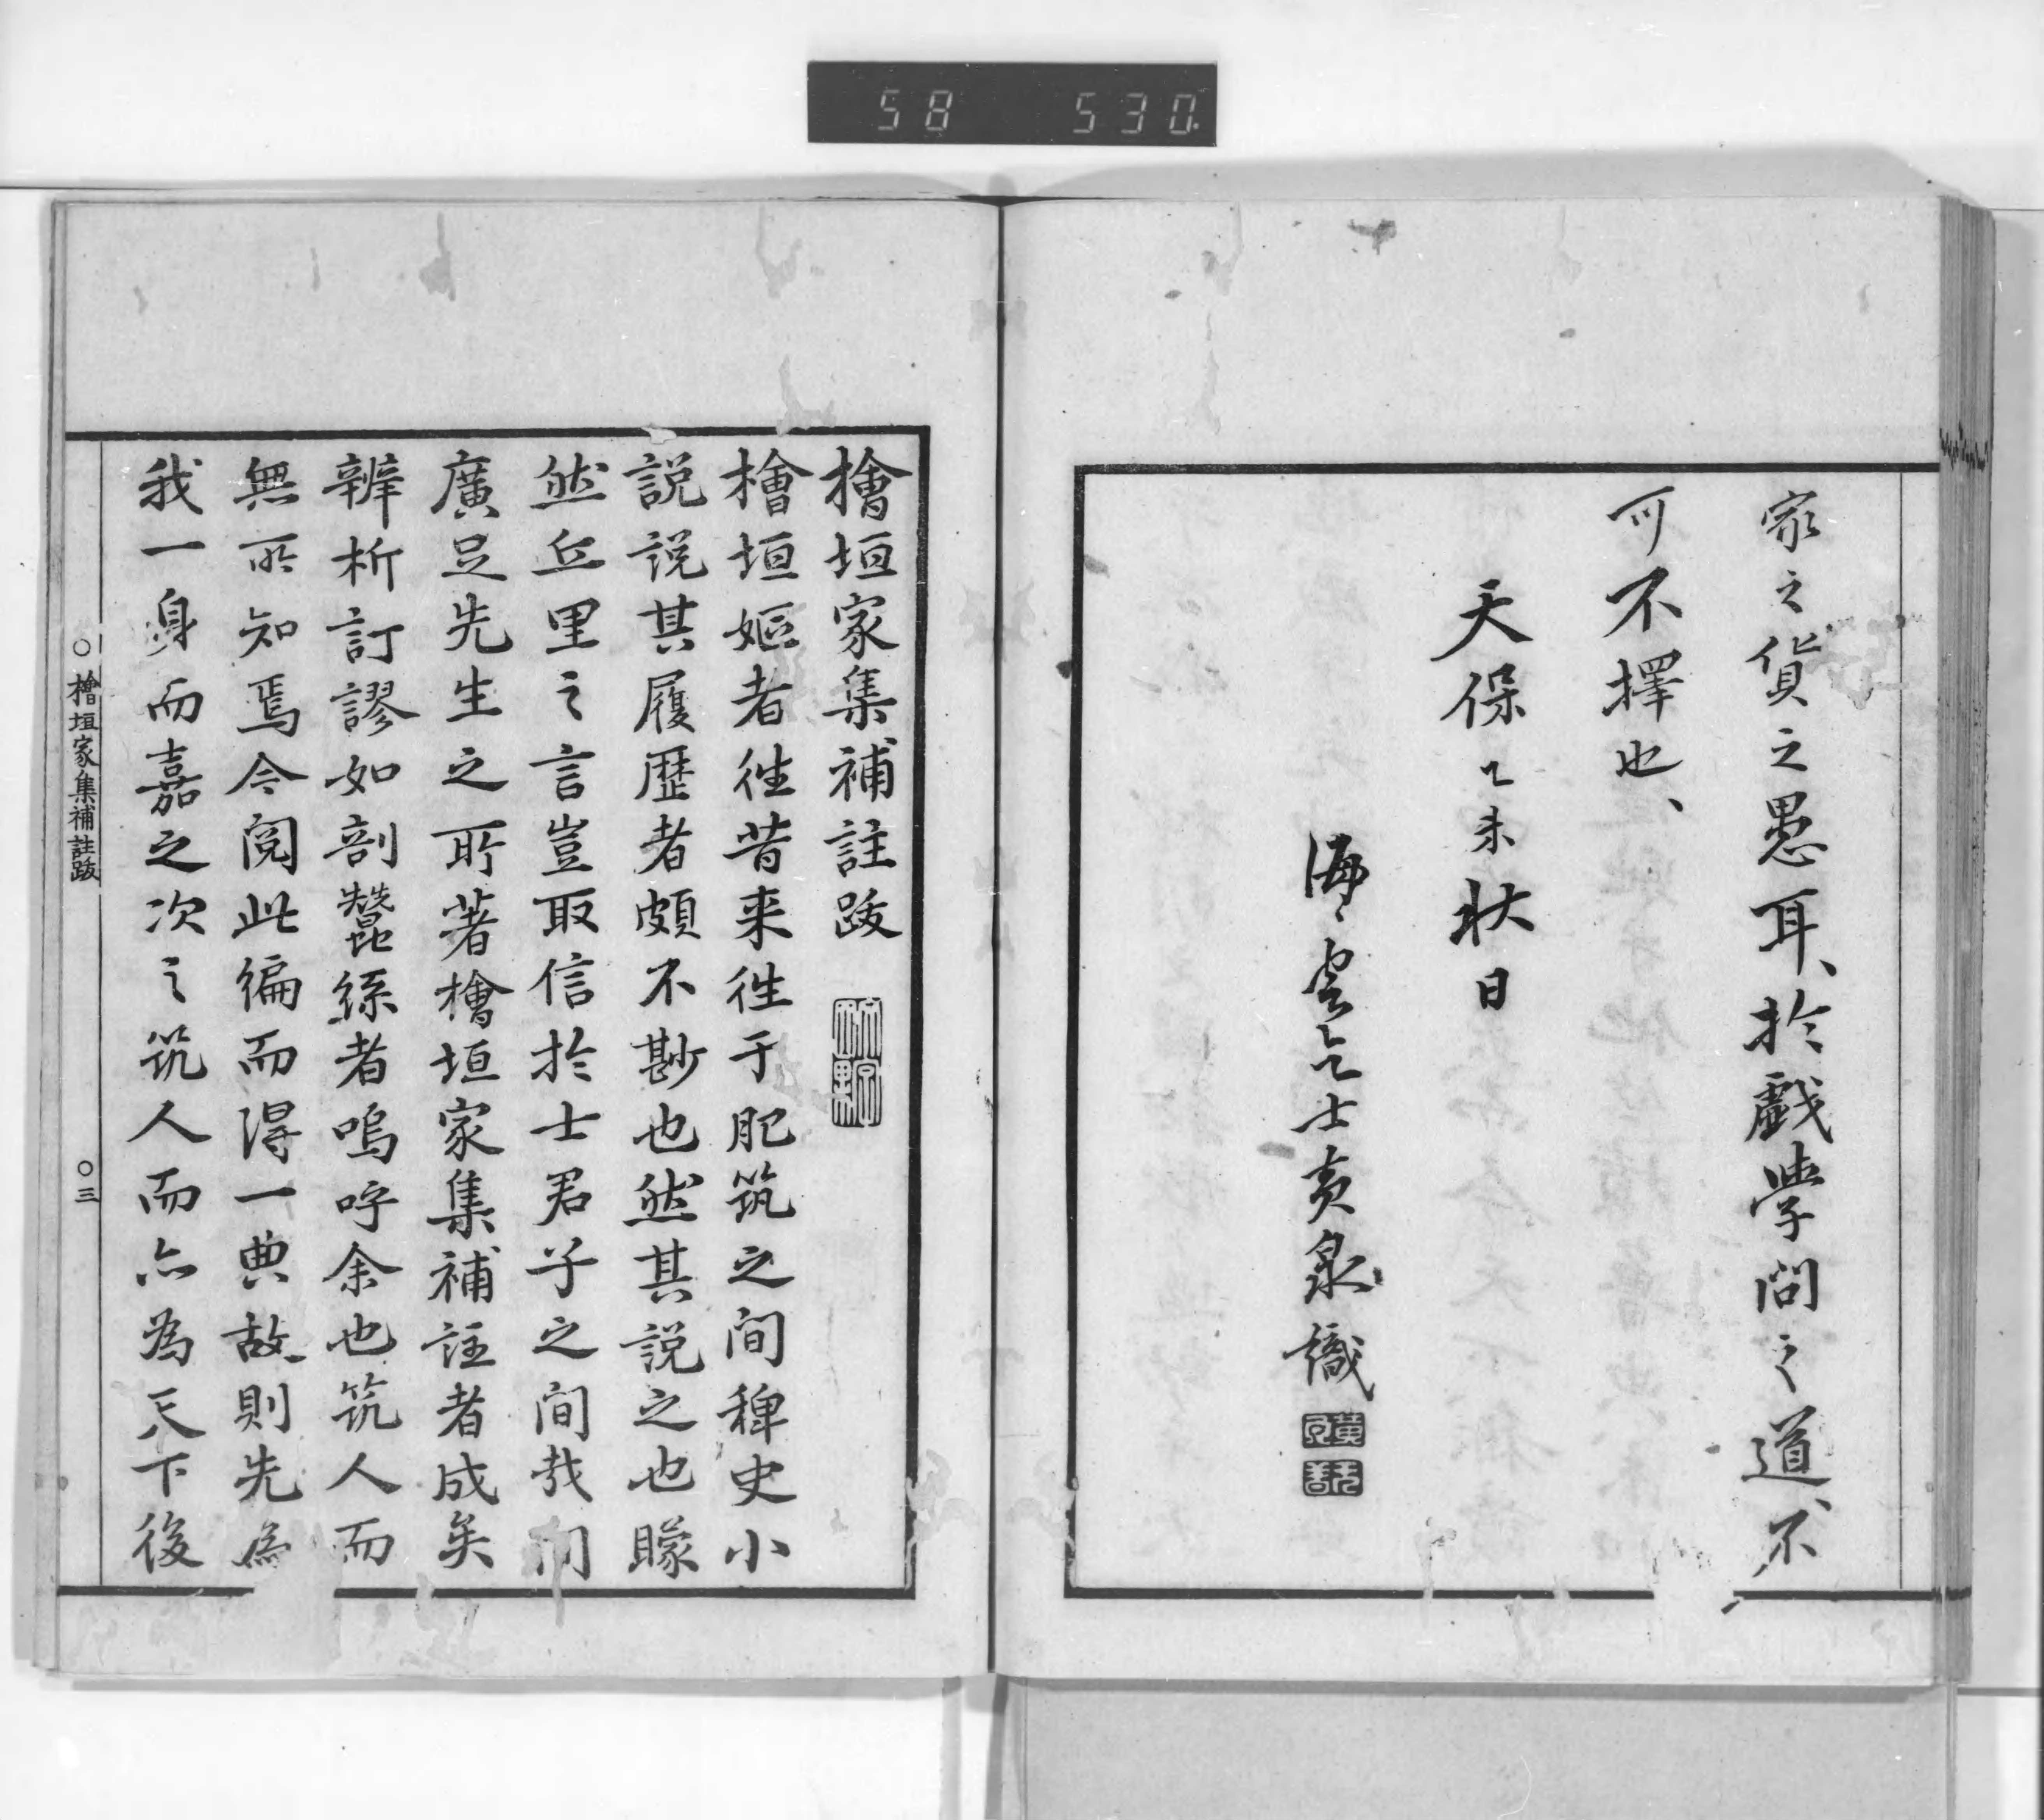 58 530
家之貨之愚耳、於戲學問之道不
可不擇也、
天保乙未狀日
士
識
檜垣家集補註跋
檜垣嫗者徃昔来徃于肥筑之间稗史小
説説其履歴者頗不尠也然其説之也矇
然丘里之言豈取信於士君子之间哉间
廣足先生之所著檜垣家集補註者成矣
辨析訂謬如剖蠶絲者嗚呼余也筑人而
無所知焉今閲此徧而得一典故則先為
我一身而嘉之次之筑人而亦為天下後
○檜垣家集補註跋
○三